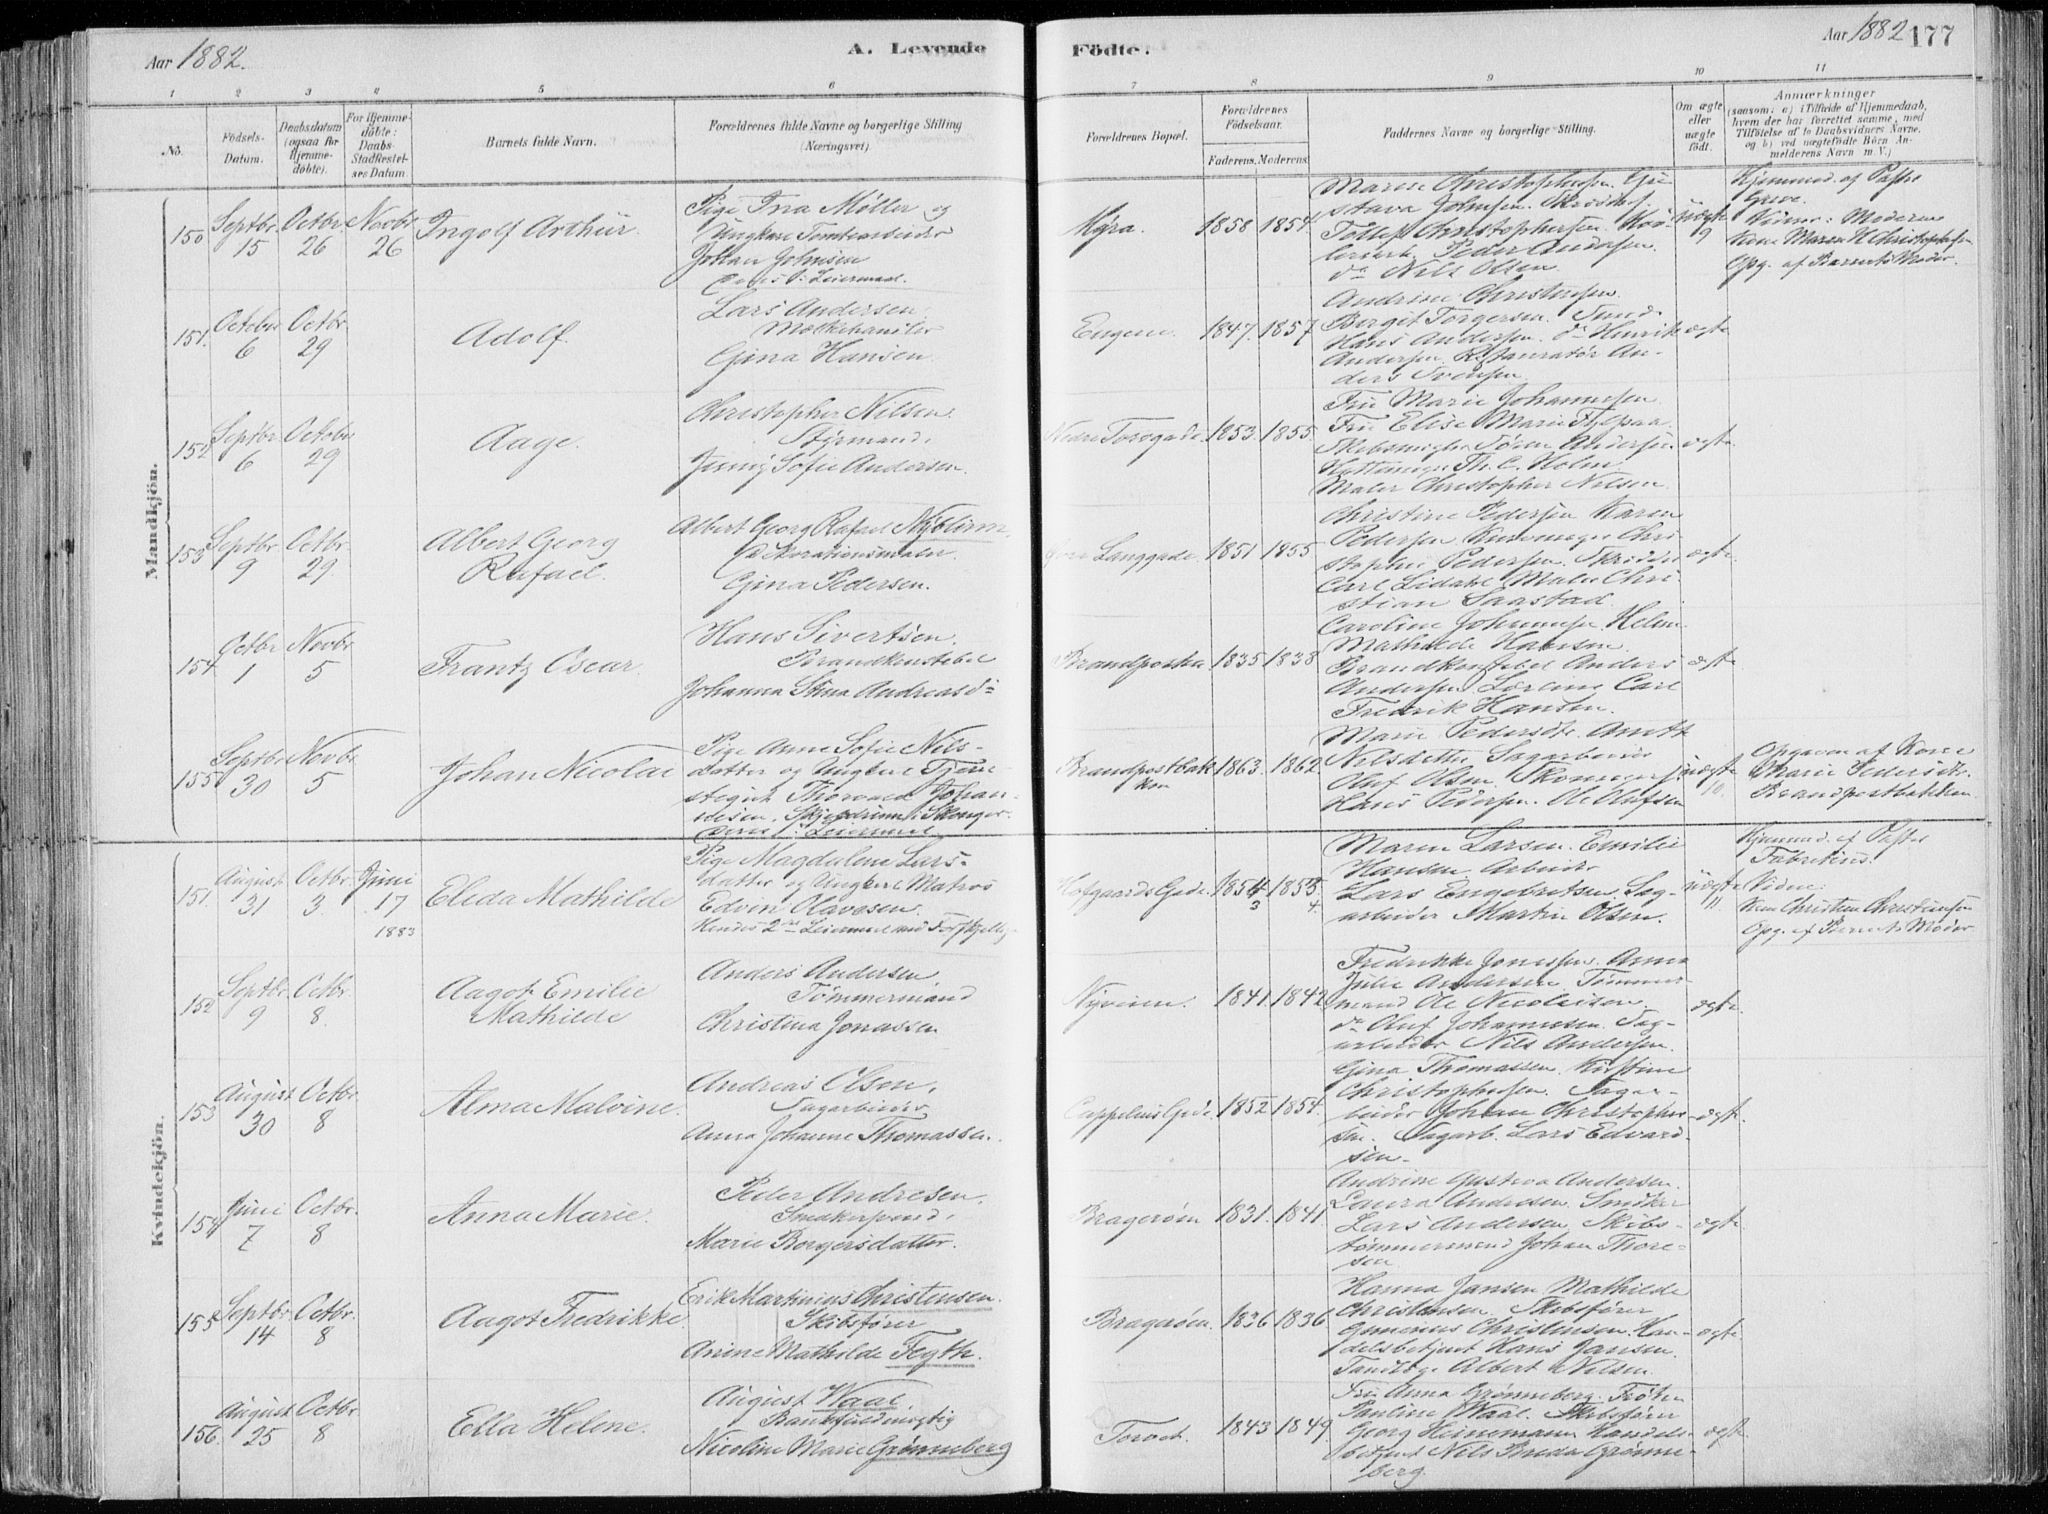 Aar 1882.
A. Levende
Födte.
Aar 1882
177
1
2
3
4
5
6
7
8
9
10
11
No.
Födsels-
Datum.
Daabsdatum
(ogsaa for
Hjemme-
döbte).
For Hjemme-
döbte:
Daabs-
Stadfæstel-
ses Datum
Barnets fulde Navn.
Forældrenes fulde Navne og borgerlige Stilling
(Næringsvei)
Forældrenes Bopæl.
Forældrenes
Födselsaar.
Faderens.
Moderens.
Faddernes Navne og borgerlige Stilling.
Om ægte
eller
uægte
födt.
Anmærkninger
(saasom: a) i Tilfælde af Hjemmedaab,
hvem der har forrettet samme, med
Tilföielse af to Daabsvidners Navne,
og b) ved uægtefödte Börn An-
melderens Navn m. V.)
Mandkjön.
150
Septbr. 15
Octbr. 26
Novbr 26
Ingolf Arthur.
Pige Ina Møller og
Ungkarl Tomtearbeider
Johan Johnsen
Myra.
1858
1854
Maren Christophersen. Gu
stava Johnsen.
Christophersen.
Peder Andersen.
do Nils Olsen
uægte
9
Hjemmed. af
Vidner: Moderen
Kone Maren K Christophersen
Opg. af Barnets Moder.
151.
October 6
Octbr. 29
Adolf.
Lars Andersen
Gina Hansen.
Engene.
1847.
1857
Andrine Christensen.
Bergit Torgersen.
Hans Andersen. do Henrik
Andersen. Restauratør An-
ders Svensen
ægte
152
Septbr. 6
October 29
Aage.
Christopher Nilsen.
Styrmand.
Jenny Sofie Andersen.
Nedre Torvgade.
1853.
1855.
Fru Marie Johannesen.
Fru Elise Marie
Skibsmægler Sören Andersen
Th. C. Holm
Maler Christopher Nilsen.
ægte
153
Septbr. 9
Octbr. 29
Albert Georg
Rafael.
Albert Georg Rafael
Dekorationsmaler.
Gina Pedersen.
Langgade.
1851
1855
Christine Pedersen Karen
Pedersen Chri
stopher Pedersen. Skrædder
Carl Maler Chri
stian Saastad.
ægte.
154
Octbr 1
Novbr 5
Frantz Oscar.
Hans Sivertsen.
Brandkonstabel
Johanna Stina Andreasd
Brandposten
1835
1838
Caroline Johannesen
Mathilde Hansen.
Brandkonstabel Anders
Andersen. Carl
Fredrik Hansen.
ægte
155
Septbr 30
Novbr. 5
Johan Nicolai
Pige Anne Sofie Nils-
datter og Ungkarl
Thorvald Johan-
nesen.
Brandpostbak
ken
1863.
1862.
Marie Pedersdtr.
Nilsdatter Sagarbeider
Oluf Olsen. Skomager
Hans Pedersen. Ole Olufsen
uægte
10.
Opgaven af Kone
Marie Pedersdtr.
Brandpostbakken
Kvindekjön.
151.
August 31
Octbr. 3.
Juni 17
1883
Eleda Mathilde
Pige Magdalena Lars-
datter og Ungkarl Matros
Edvin Olavesen.
Hofgaards Gade.
1854
3
1853.
4.
Maren Larsen. Emilie
Hansen Arbeider
Lars Engebretsen Sag-
arbeider Martin Olsen.
uægte
11
Hjemmed. af
Opg. af Barnets Moder
152
Septbr. 9
Octbr. 8.
Aagot Emilie
Mathilde
Anders Andersen
Tømmermand
Christina Jonassen
Nyveien.
1841.
1842
Fredrikke Jonassen. Anna
Julie Andersen. Tømmer-
mand Ole Nicolaisen.
do Oluf Johannesen. Sag-
arbeider Nils Andersen.
ægte.
153
August 30
Octbr. 8
Alma Malvine.
Andreas Olsen.
Sagarbeider
Anna Johanne Thomassen.
Cappelens Gade.
1852
1854.
Gina Thomassen. Kirstine
Christophersen. Sagar-
beider Johan Christopher
sen. Sagarb. Lars Edvard-
sen.
ægte.
154
Juni 7
Octbr. 8
Anna Marie.
Peder Andresen.
Marie Borgersdatter.
Bragerøen
1831.
1841
Andrine Gustava Andersen.
Laura Andersen
Lars Andersen Skibs-
tømmermand Johan Thore-
sen
ægte
155
Septbr. 14
Octbr. 8
Aagot Fredrikke.
Erik Martinius Christensen.
Skibsfører
Anine Mathilde Fegth.
Bragerøen.
1836
1836
Hanna Jansen Mathilde
Christensen. Skibsfører
Gunerius Christensen. Han-
delsbetjent Hans Jansen.
Albert Nilsen.
ægte
156.
August 25
Octbr. 8
Ella Helene.
August Waal.
Bankfuldmægtig
Nicoline Marie Grønneberg
Torvet.
1843
1849.
Fru Anna Grønneberg. Frøken
Pauline Waal. Skibsfører
Georg Heinemann Handels-
betjent Nils Breda Grønne-
berg.
ægte